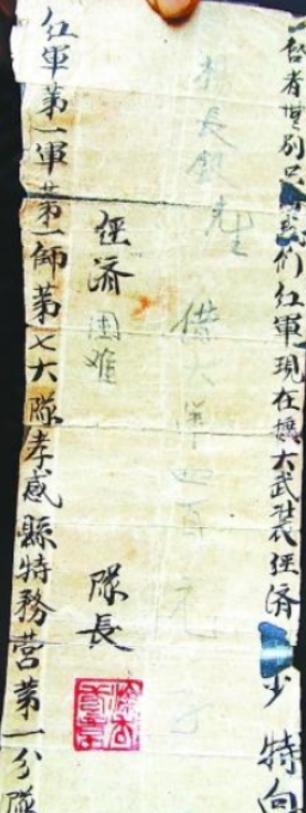 者 别 們红軍現在擴大武裝經濟 少特向
楊長銀先生 借大洋四百元
經濟困难 隊長
红軍第一軍第一師第七大隊孝感縣特務营第一分隊